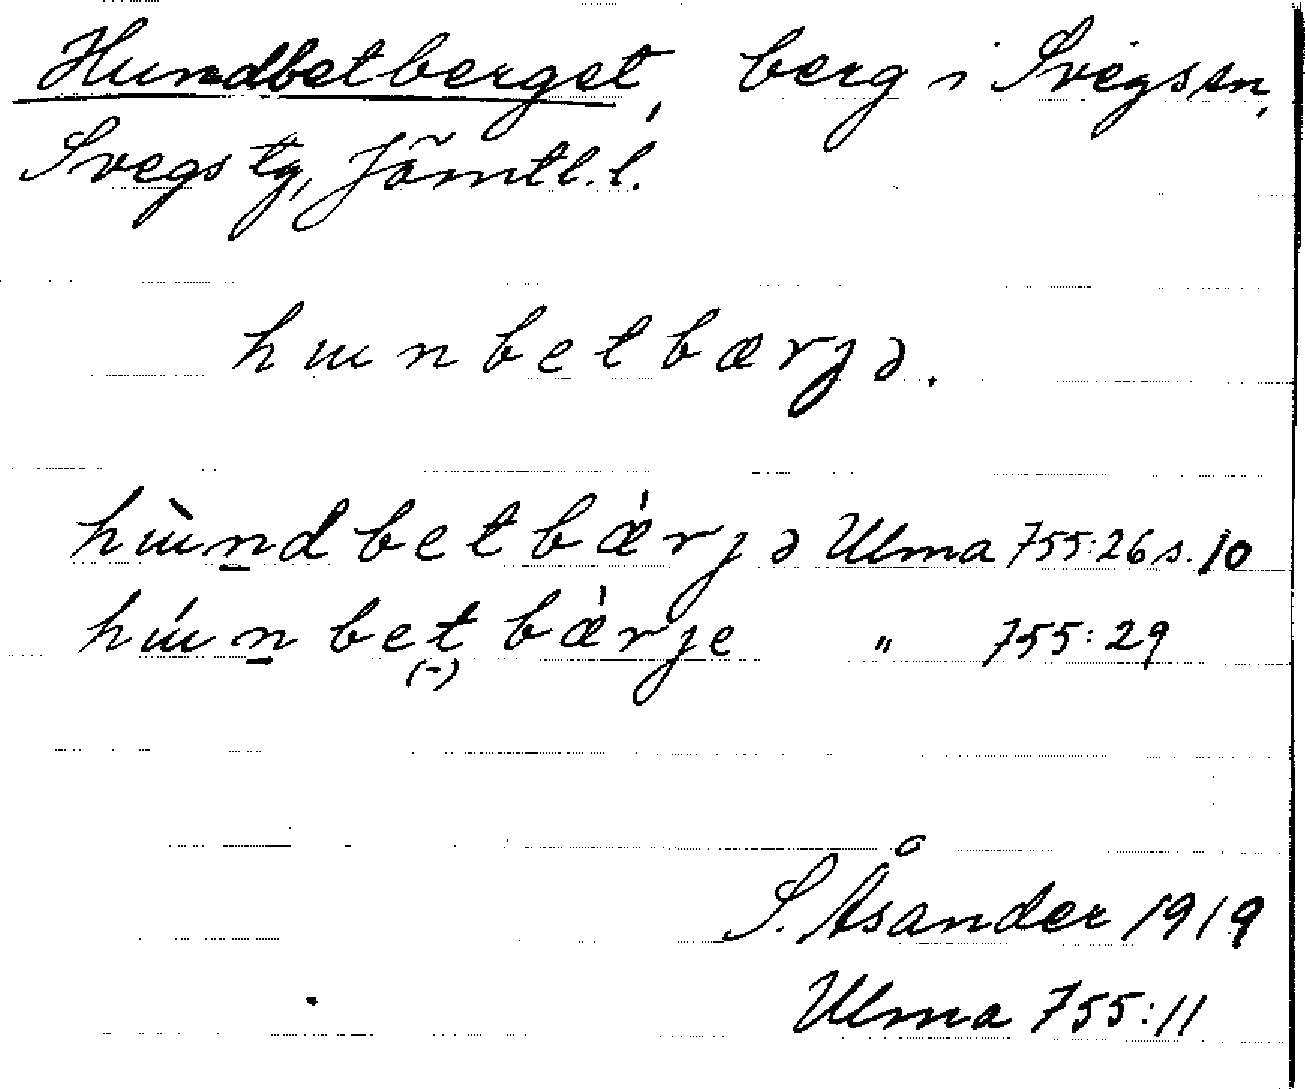 Hundbetberget, berg i Svegs sn,
Svegs tg, Jämtl. l.
hɯnbetbærjə.
hɯ̀n̲dbetbæ̍rjə Ulma 755:26 s. 10
hɯ́n̲betbæ̍rje " 755:29
(-)
S. Åsander 1919
Ulma 755:11